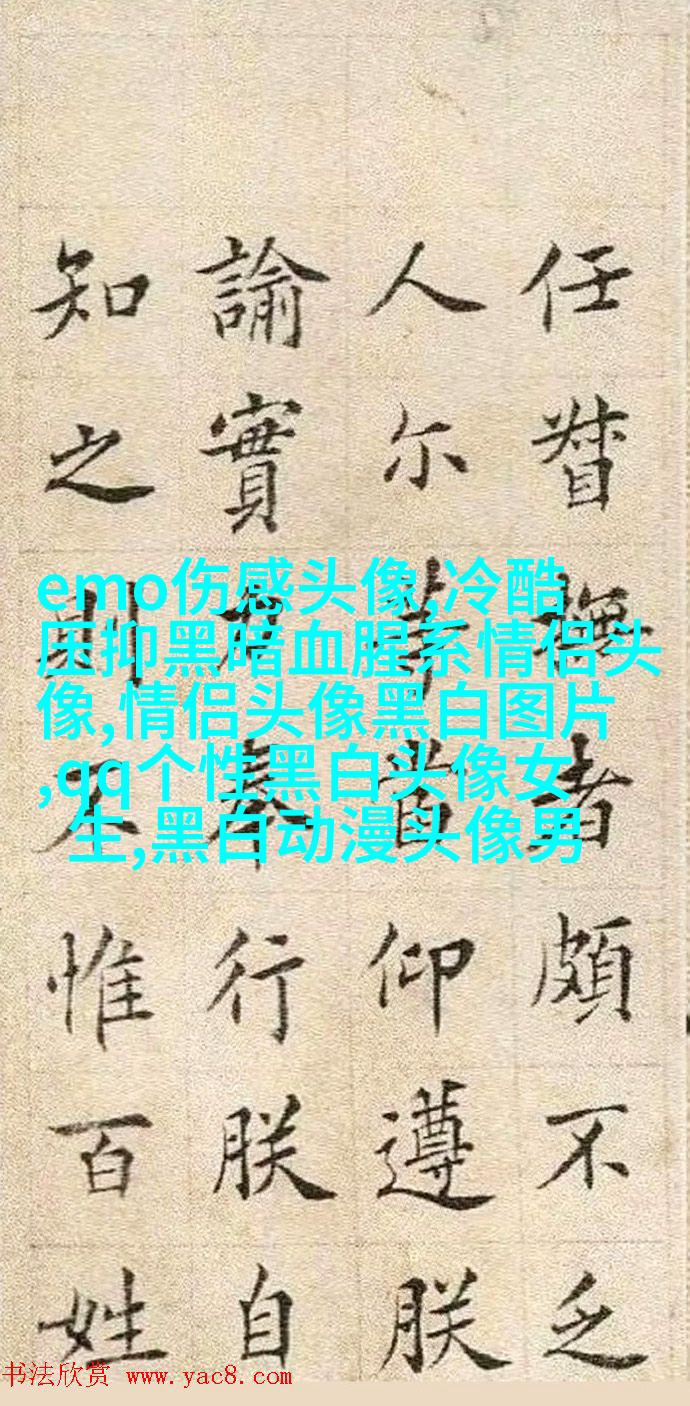 任督撫者頗不乏
人尔等仰遵朕
諭實力奉行朕自
知之則不惟百姓
emo伤感头像,冷酷
压抑黑暗血腥系情侣头
像,情侣头像黑白图片
,qq个性黑白头像女
生,黑白动漫头像男
书法欣赏 www.yac8.com